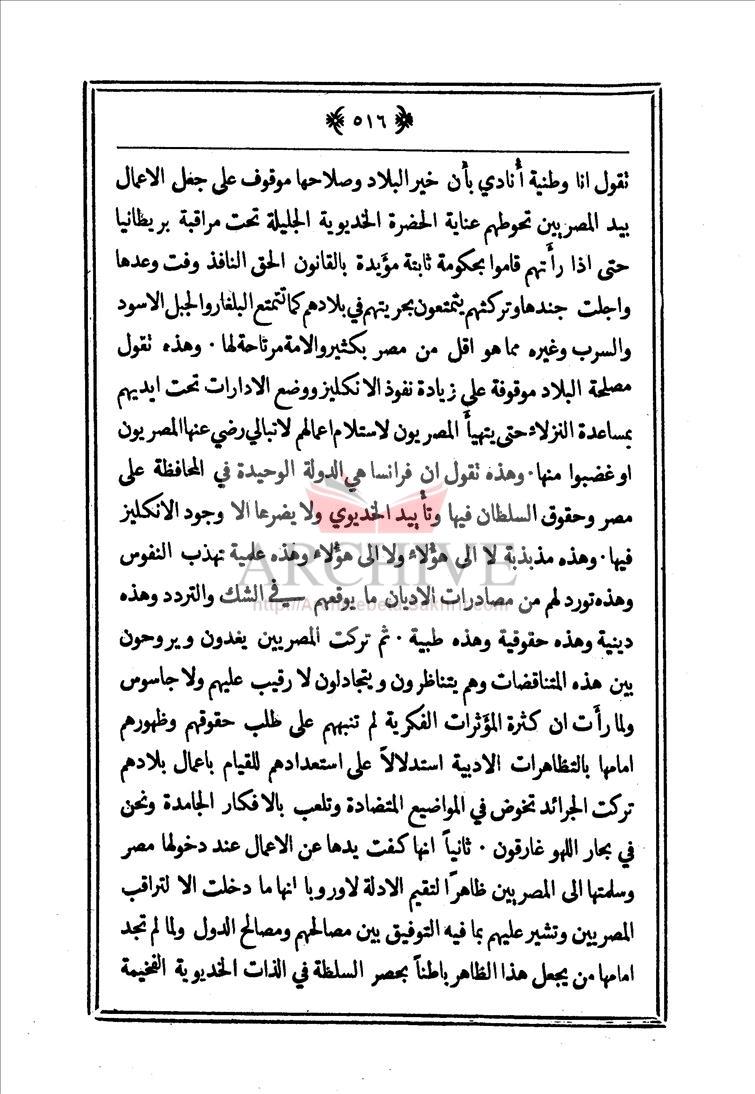 ﴿ ٥١٦ ﴾
تقول انا وطنية أُنادي بأن خير البلاد وصلاحها موقوف على جعل الاعمال
بيد المصريين تحوطهم عناية الحضرة الخديوية الجليلة تحت مراقبة بريطانيا
حتى اذا رأَتهم قاموا بحكومة ثابتة مؤيدة بالقانون الحق النافذ وفت وعدها
واجلت جندها وتركتهم يتمتعون بحريتهم في بلادهم كما تتمتع البلغار والجبل الاسود
والسرب وغيره مما هو اقل من مصر بكثير والامة مرتاحة لها · وهذه تقول
مصلحة البلاد موقوفة على زيادة نفوذ الانكليز ووضع الادارات تحت ايديهم
بمساعدة النزلاء حتى يتهيأَ المصريون لاستلام اعمالهم لا تبالي رضي عنها المصريون
او غضبوا منها · وهذه تقول ان فرانسا هي الدولة الوحيدة في المحافظة على
مصر وحقوق السلطان فيها وتأييد الخديوي ولا يضرها الا وجود الانكليز
فيها · وهذه مذبذبة لا الى هؤلاء ولا الى هؤلاء وهذه علمية تهذب النفوس
وهذه تورد لهم من مصادرات الاديان ما يوقعهم في الشك والتردد وهذه
دينية وهذه حقوقية وهذه طبية · ثم تركت المصريين يغدون ويروحون
بين هذه المتناقضات وهم يتناظرون ويتجادلون لا رقيب عليهم ولا جاسوس
ولما رأَت ان كثرة المؤثرات الفكرية لم تنبههم على طلب حقوقهم وظهورهم
امامها بالتظاهرات الادبية استدلالاً على استعدادهم للقيام باعمال بلادهم
تركت الجرائد تخوض في المواضيع المتضادة وتلعب بالافكار الجامدة ونحن
في بحار اللهو غارقون · ثانياً انها كفت يدها عن الاعمال عند دخولها مصر
وسلمتها الى المصريين ظاهرًا لتقيم الادلة لاوروبا انها ما دخلت الا لتراقب
المصريين وتشير عليهم بما فيه التوفيق بين مصالحهم ومصالح الدول ولما لم تجد
امامها من يجعل هذا الظاهر باطناً بحصر السلطة في الذات الخديوية الفخيمة
ARCHIVE